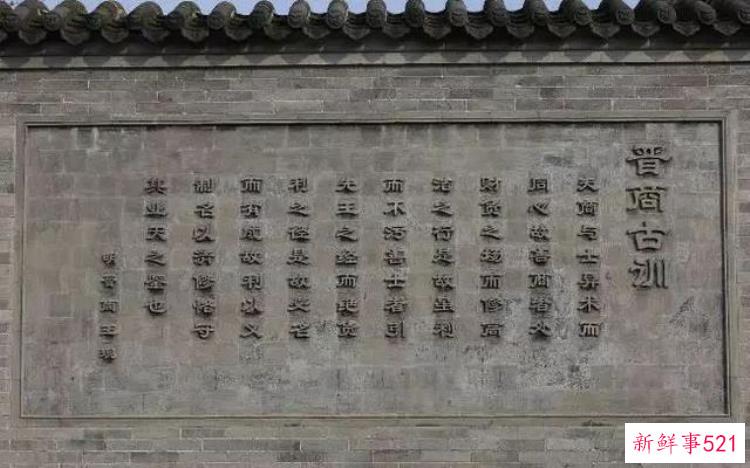 晋商古训
夫商与士异术而
同心故善商者处
财货之场而修高
洁之行是故虽利
而不污善士者引
先王之经而绝货
利之径是故必名
而有成故利以义
制名以清修恪守
其业天之鉴也
明晋商王现
新鲜事521